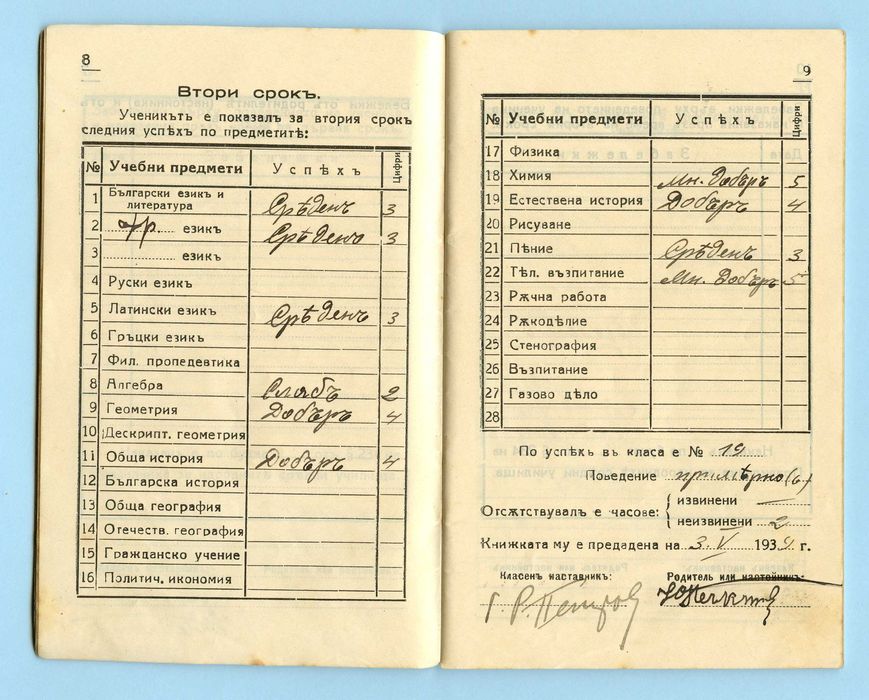 8
Втори срокъ.
Ученикътъ е показалъ за втория срокъ
следния успѣхъ по предметитѣ:
№ Учебни предмети Успѣхъ Цифри
1 Български езикъ и
литература Срѣденъ 3
2 фр. езикъ Срѣденъ 3
3 езикъ
4 Руски езикъ
5 Латински езикъ Срѣденъ 3
6 Гръцки езикъ
7 Фил. пропедевтика
8 Алгебра Слабъ 2
9 Геометрия Добъръ 4
10 Дескрипт. геометрия
11 Обща история Добъръ 4
12 Българска история
13 Обща география
14 Отечеств. география
15 Гражданско учение
16 Политич. икономия
9
№ Учебни предмети Успѣхъ Цифри
17 Физика
18 Химия Мн. добъръ 5
19 Естествена история Добъръ 4
20 Рисуване
21 Пѣние Срѣденъ 3
22 Тѣл. възпитание Мн. Добъръ 5
23 Рѫчна работа
24 Рѫкодѣлие
25 Стенография
26 Възпитание
27 Газово дѣло
28
По успѣхъ въ класа е № 19
Поведение примѣрно (6)
Отсѫтствувалъ е часове: { извинени —
неизвинени 2
Книжката му е предадена на 3.V 1939. г.
Класенъ наставникъ: Родитель или настойникъ:
Р. Петров